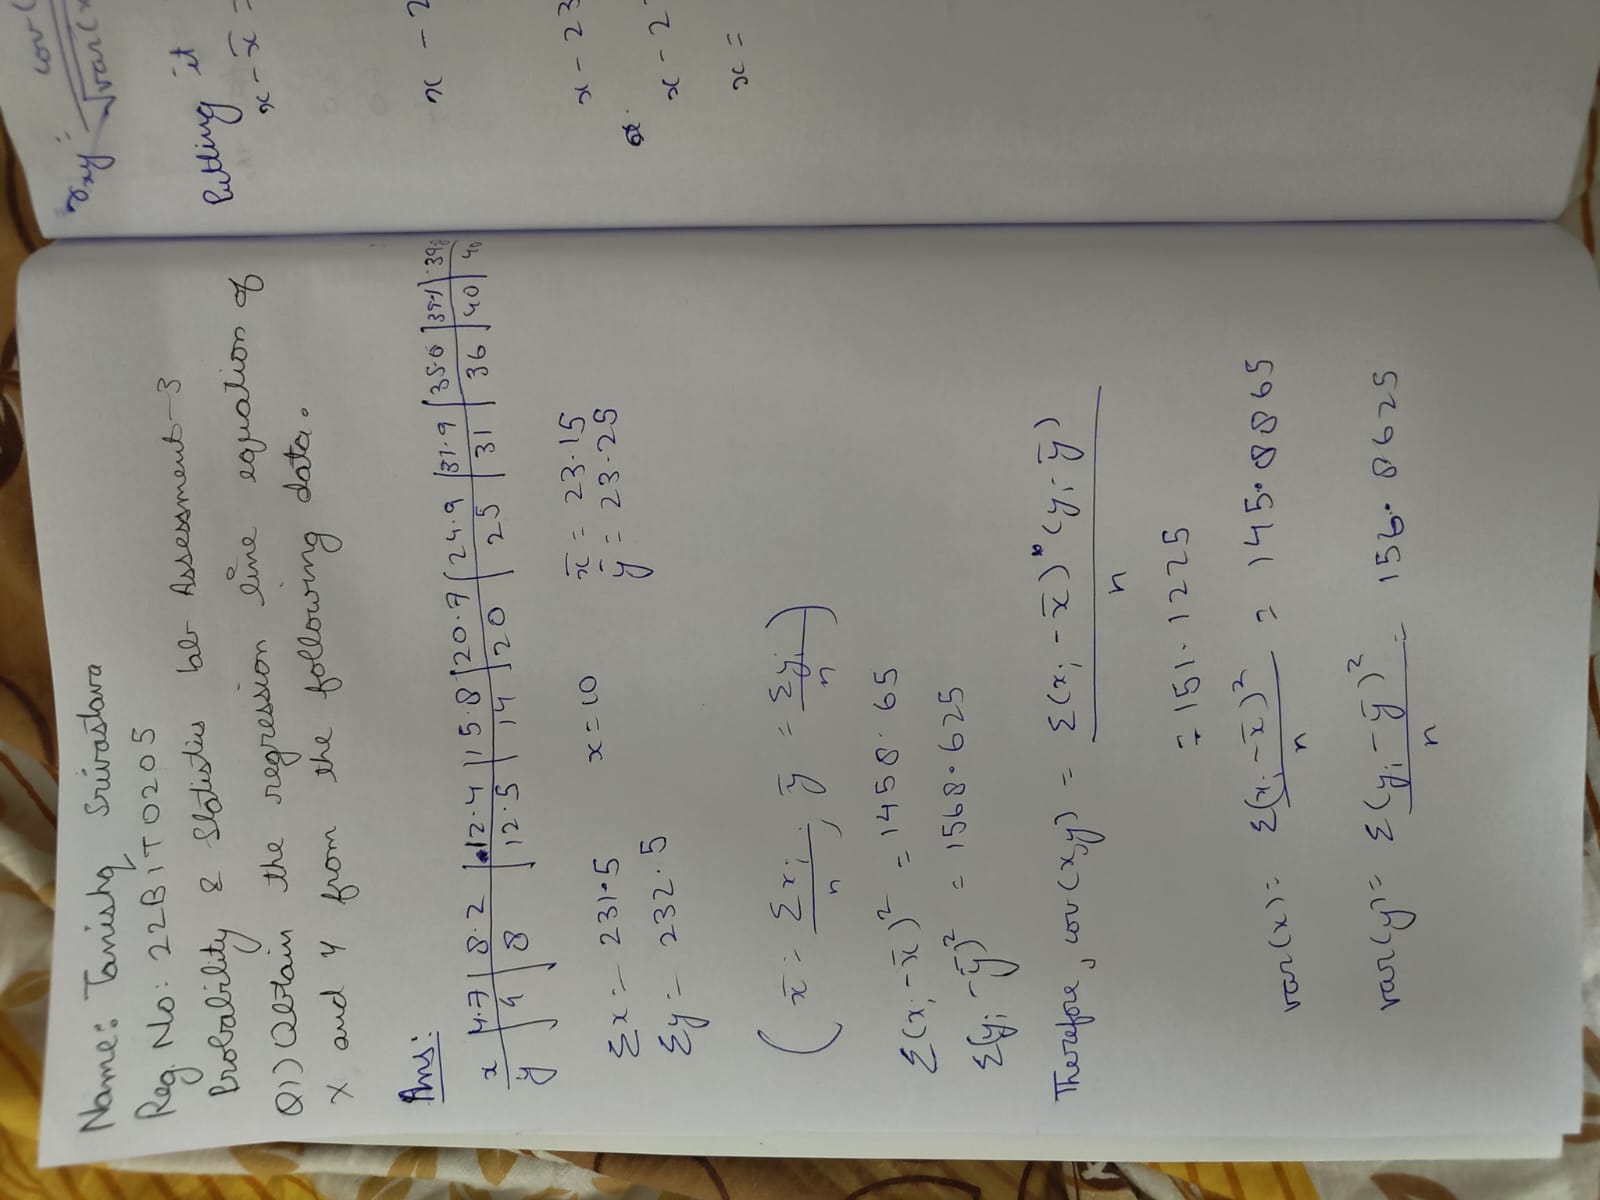 Name: Tanishq Srivastava
Reg. No: 22BIT0205
Probability & Statistics lab Assessment-3
Q1) Obtain the regression line equation of
X and Y from the following data.
Ans:
x 4.7 8.2 12.4 15.8 20.7 24.9 31.9 35.0 39.1 39.8
y 4 8 12.5 14 20 25 31 36 40 40
Σx = 231.5 x = 10 x̄ = 23.15
Σy = 232.5 ȳ = 23.25
( x̄ = Σxi / n , ȳ = Σyi / n )
Σ(xi - x̄)² = 1458.65
Σ(yi - ȳ)² = 1568.625
Therefore, cov(x,y) = Σ(xi - x̄)*(yi - ȳ) / n
= 151.1225
var(x) = Σ(xi - x̄)² / n = 145.8865
var(y) = Σ(yi - ȳ)² / n = 156.8625
rxy = cov( / √var(x
Putting it
x - x̄ =
x - 2
x - 23
x - 2
x =